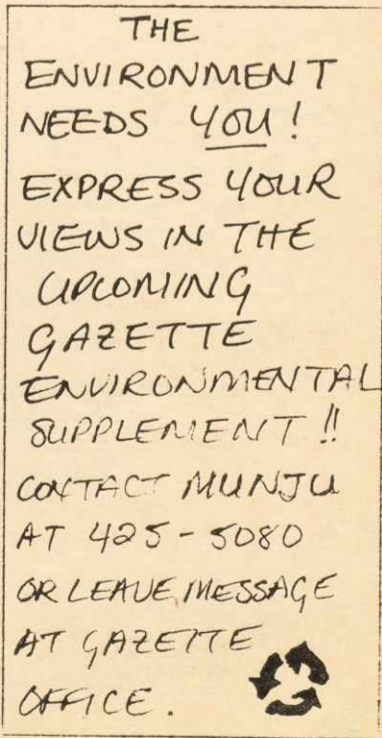 THE
ENVIRONMENT
NEEDS YOU!
EXPRESS YOUR
VIEWS IN THE
UPCOMING
GAZETTE
ENVIRONMENTAL
SUPPLEMENT!!
CONTACT MUNJU
AT 425-5080
OR LEAVE MESSAGE
AT GAZETTE
OFFICE.